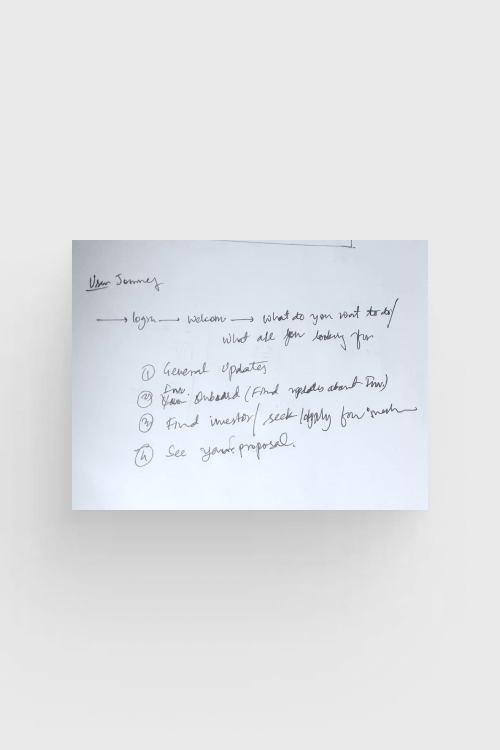 User Journey
→ login → welcom → what do you want to do/
what are you looking for
① General Updates
② Inv. Onboard (Find updates about Inv.)
③ Find investor/ seek/apply for
④ See your proposal.